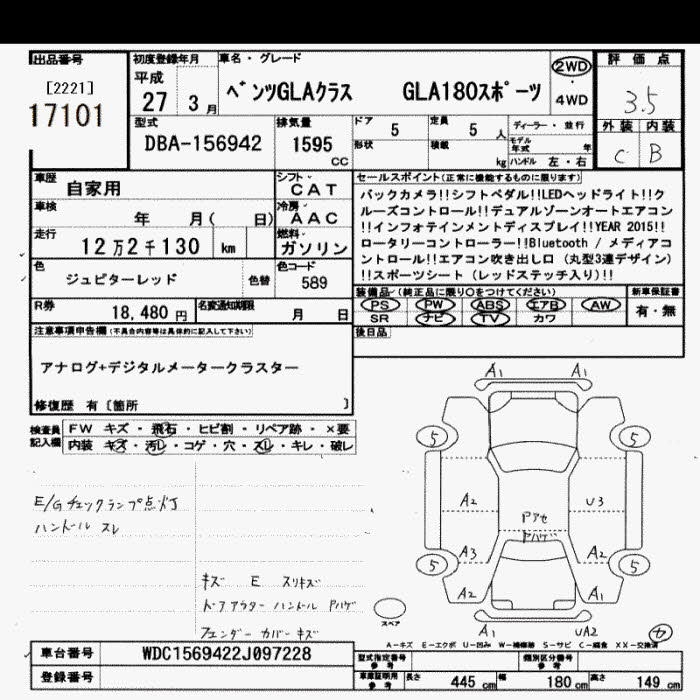 出品番号
[2221]
17101
初度登録年月
平成
27 3 月
車名・グレード
ベンツGLAクラス GLA180スポーツ
2WD
4WD
評価点
3.5
外装 内装
C B
型式
DBA-156942
排気量
1595
CC
ドア 5
定員 5 人
形状
積載 kg
ディーラー・並行
モデル年式 年
ハンドル 左・右
車歴
自家用
シフト
CAT
車検
年 月( 日)
冷房
AAC
走行
12万2千130 km
燃料
ガソリン
色
ジュピターレッド
色替
色コード
589
セールスポイント(正常に機能するものに限ります)
バックカメラ!!シフトペダル!!LEDヘッドライト!!ク
ルーズコントロール!!デュアルゾーンオートエアコン
!!インフォテインメントディスプレイ!!YEAR 2015!!
ロータリーコントローラー!!Bluetooth / メディアコ
ントロール!!エアコン吹き出し口 (丸型3連デザイン)
!!スポーツシート (レッドステッチ入り)!!
R券
18,480 円
名変通知期限
月 日
装備品(純正品に限り○をつけてください)
PS PW ABS エアB AW
SR ナビ TV カワ
新車保証書
有・無
注意事項申告欄(不具合内容等は具体的に記入して下さい)
アナログ+デジタルメータークラスター
修復歴 有〔箇所 〕
後日品
検査員記入欄
FW キズ・飛石・ヒビ割・リペア跡・×要
内装 キズ・汚レ・コゲ・穴・スレ・キレ・破レ
E/Gチェックランプ点灯
ハンドル スレ
キズ E スリキズ
ドアアウター ハンドル Pハゲ
フェンダー カバー キズ
A1 A1
5 5
A2 U3
Pアセ
Pハゲ
A3 A2
5 5
A2 A1
スペア
A1 UA2
A-キズ E-エクボ U-凹み W-補修跡 S-サビ C-腐食 XX-交換済
車台番号
WDC1569422J097228
登録番号
型式指定番号 参考
類別区分番号 参考
車庫証明用 参考
長さ 445 cm
幅 180 cm
高さ 149 cm